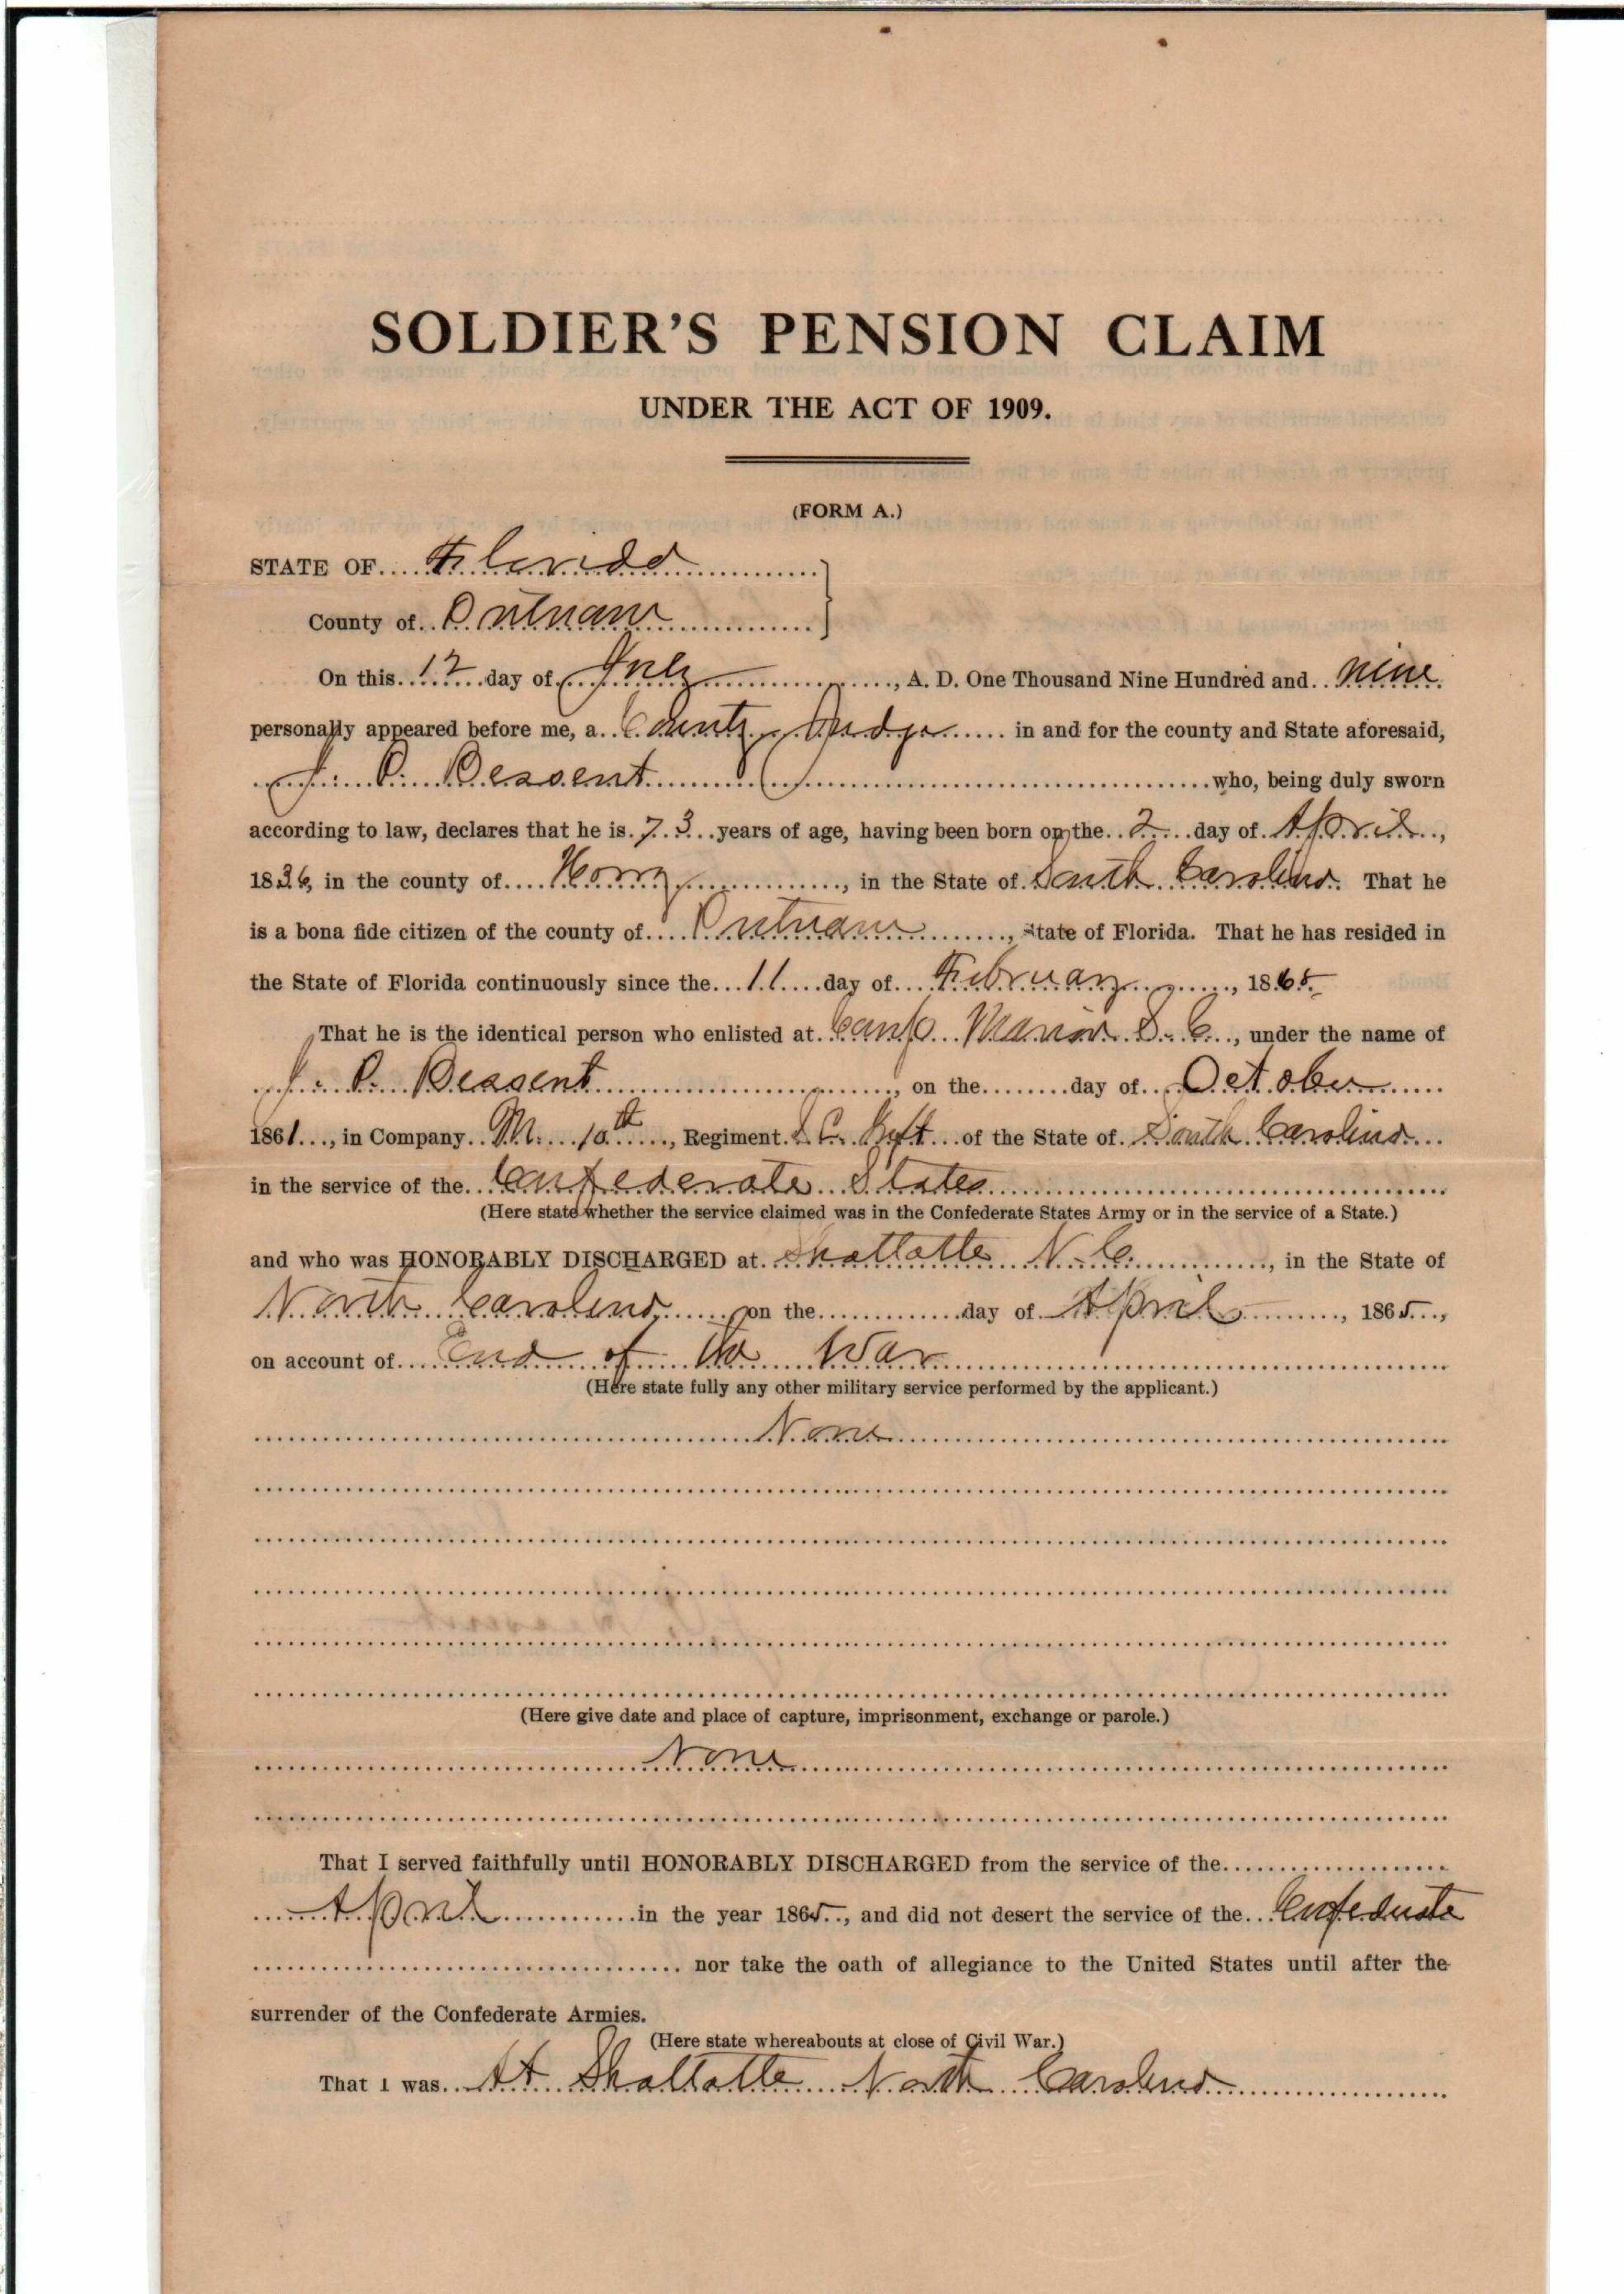 SOLDIER'S PENSION CLAIM
UNDER THE ACT OF 1909.
(FORM A.)
STATE OF Florida
County of Putnam
On this 12 day of July, A. D. One Thousand Nine Hundred and nine
personally appeared before me, a County Judge in and for the county and State aforesaid,
J. P. Bessent who, being duly sworn
according to law, declares that he is 73 years of age, having been born on the 2 day of April,
1836, in the county of Horry, in the State of South Carolina. That he
is a bona fide citizen of the county of Putnam, State of Florida. That he has resided in
the State of Florida continuously since the 11 day of February, 1868
That he is the identical person who enlisted at Camp Marion S. C., under the name of
J. P. Bessent, on the day of October
1861, in Company M. 10th, Regiment S C. of the State of South Carolina
in the service of the Confederate States
(Here state whether the service claimed was in the Confederate States Army or in the service of a State.)
and who was HONORABLY DISCHARGED at Shallotte N. C., in the State of
North Carolina on the day of April, 1865,
on account of End of the War
(Here state fully any other military service performed by the applicant.)
None
(Here give date and place of capture, imprisonment, exchange or parole.)
None
That I served faithfully until HONORABLY DISCHARGED from the service of the
April in the year 1865, and did not desert the service of the Confederate
nor take the oath of allegiance to the United States until after the
surrender of the Confederate Armies.
(Here state whereabouts at close of Civil War.)
That I was At Shallotte North Carolina